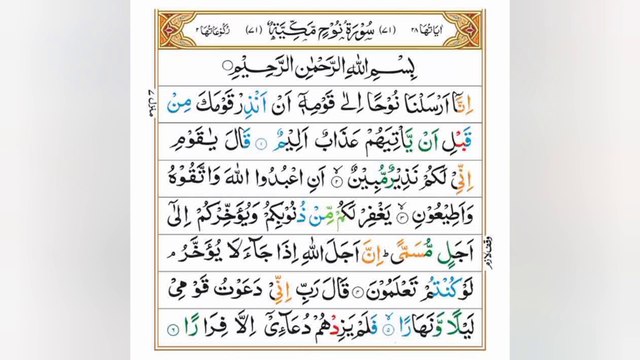 اٰیَاتُهَا ۲۸ (۷۱) سُوْرَةُ نُوْحٍ مَّكِّیَّةٌ (۷۱) رُكُوْعَاتُهَا ۲
بِسْمِ اللّٰهِ الرَّحْمٰنِ الرَّحِیْمِ
اِنَّاۤ اَرْسَلْنَا نُوْحًا اِلٰی قَوْمِهٖۤ اَنْ اَنْذِرْ قَوْمَكَ مِنْ
قَبْلِ اَنْ یَّاْتِیَهُمْ عَذَابٌ اَلِیْمٌ ۱ قَالَ یٰقَوْمِ
اِنِّیْ لَكُمْ نَذِیْرٌ مُّبِیْنٌ ۲ اَنِ اعْبُدُوا اللّٰهَ وَاتَّقُوْهُ
وَاَطِیْعُوْنِ ۳ یَغْفِرْ لَكُمْ مِّنْ ذُنُوْبِكُمْ وَیُؤَخِّرْكُمْ اِلٰۤی
اَجَلٍ مُّسَمًّی ؕ اِنَّ اَجَلَ اللّٰهِ اِذَا جَآءَ لَا یُؤَخَّرُ ۘ
لَوْ كُنْتُمْ تَعْلَمُوْنَ ۴ قَالَ رَبِّ اِنِّیْ دَعَوْتُ قَوْمِیْ
لَیْلًا وَّنَهَارًا ۵ فَلَمْ یَزِدْهُمْ دُعَآءِیْۤ اِلَّا فِرَارًا ۶
وقف لازم